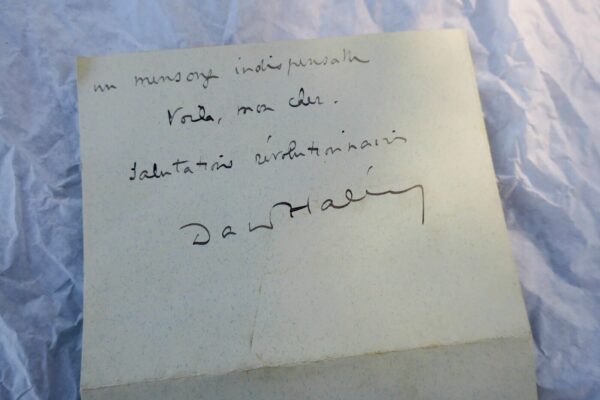 un mensonge indispensable
Voilà, mon cher.
Salutations révolutionnaires
Dan Halévy